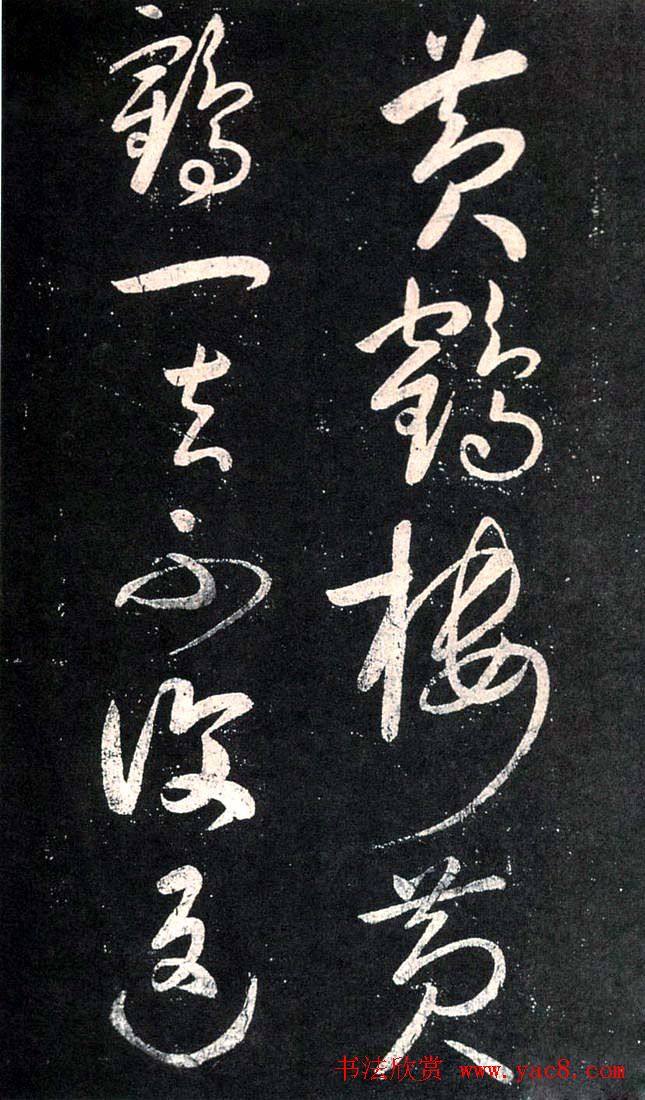 黄鹤楼黄
鹤一去不復返
书法欣赏 www.yac8.com